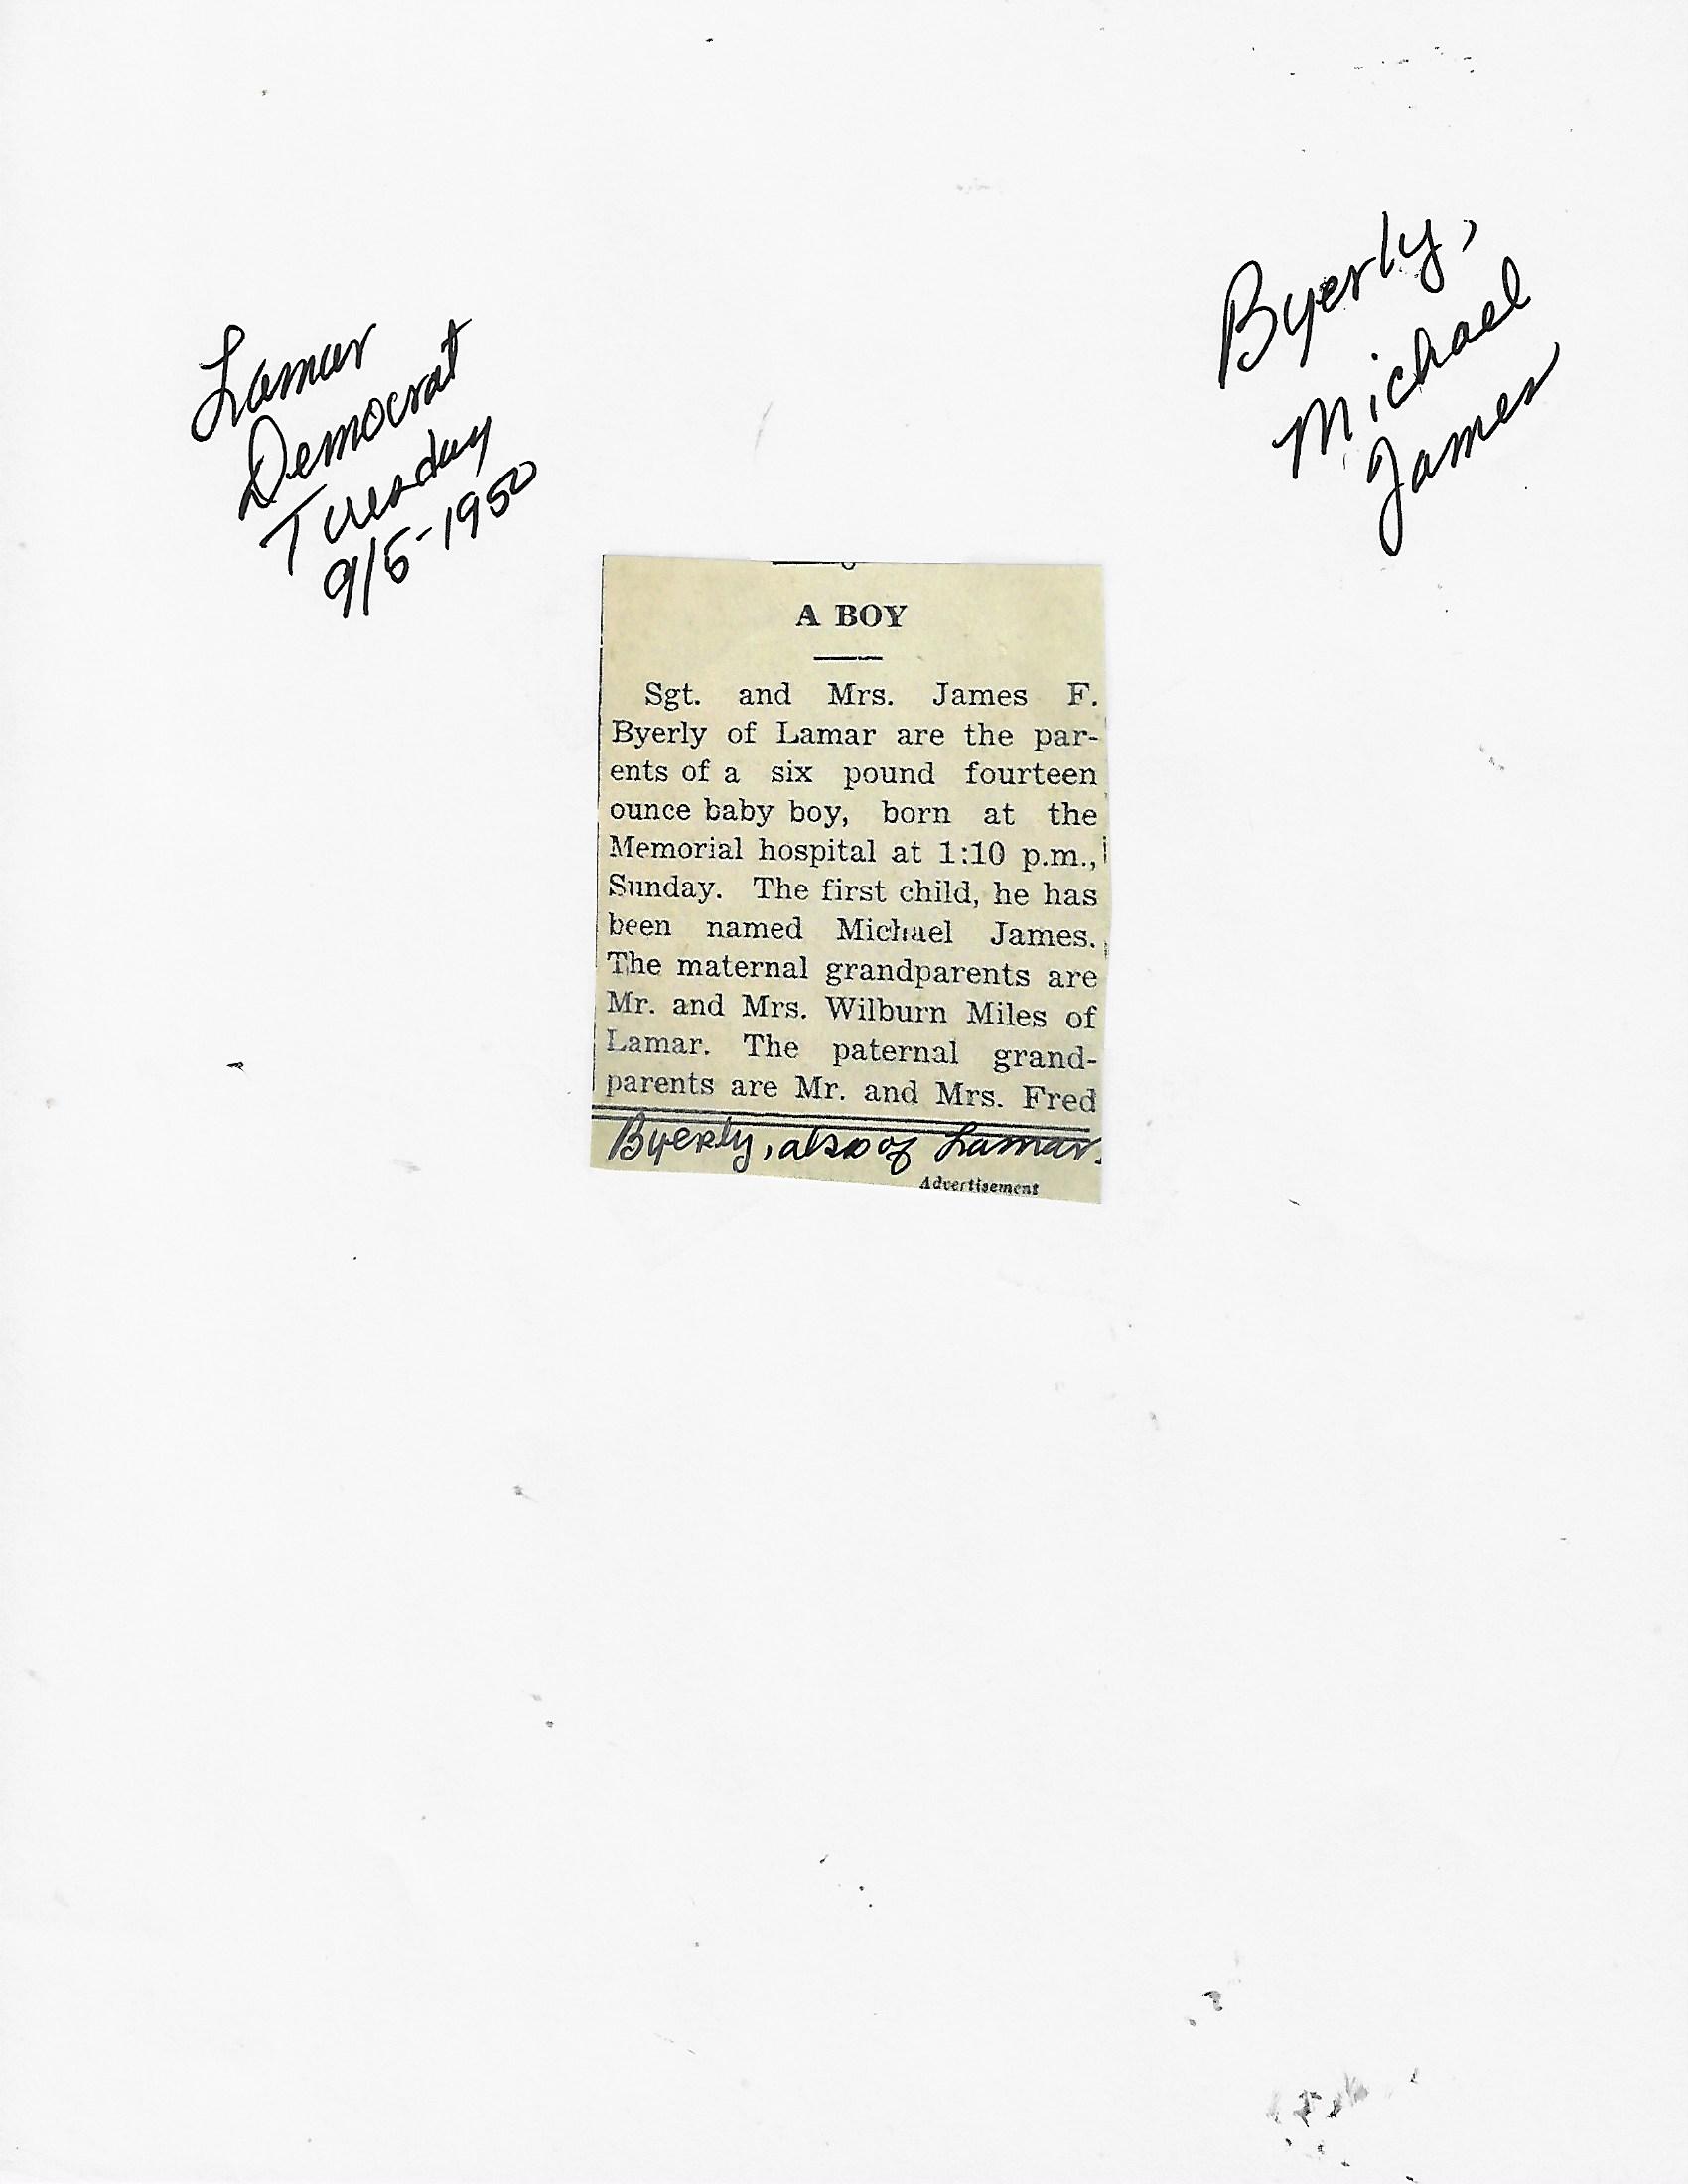 Byerly,
Michael
James
Lamar
Democrat
Tuesday
9/5-1950
A BOY
Sgt. and Mrs. James F.
Byerly of Lamar are the par-
ents of a six pound fourteen
ounce baby boy, born at the
Memorial hospital at 1:10 p.m.,
Sunday. The first child, he has
been named Michael James.
The maternal grandparents are
Mr. and Mrs. Wilburn Miles of
Lamar. The paternal grand-
parents are Mr. and Mrs. Fred
Byerly, also of Lamar.
Advertisement